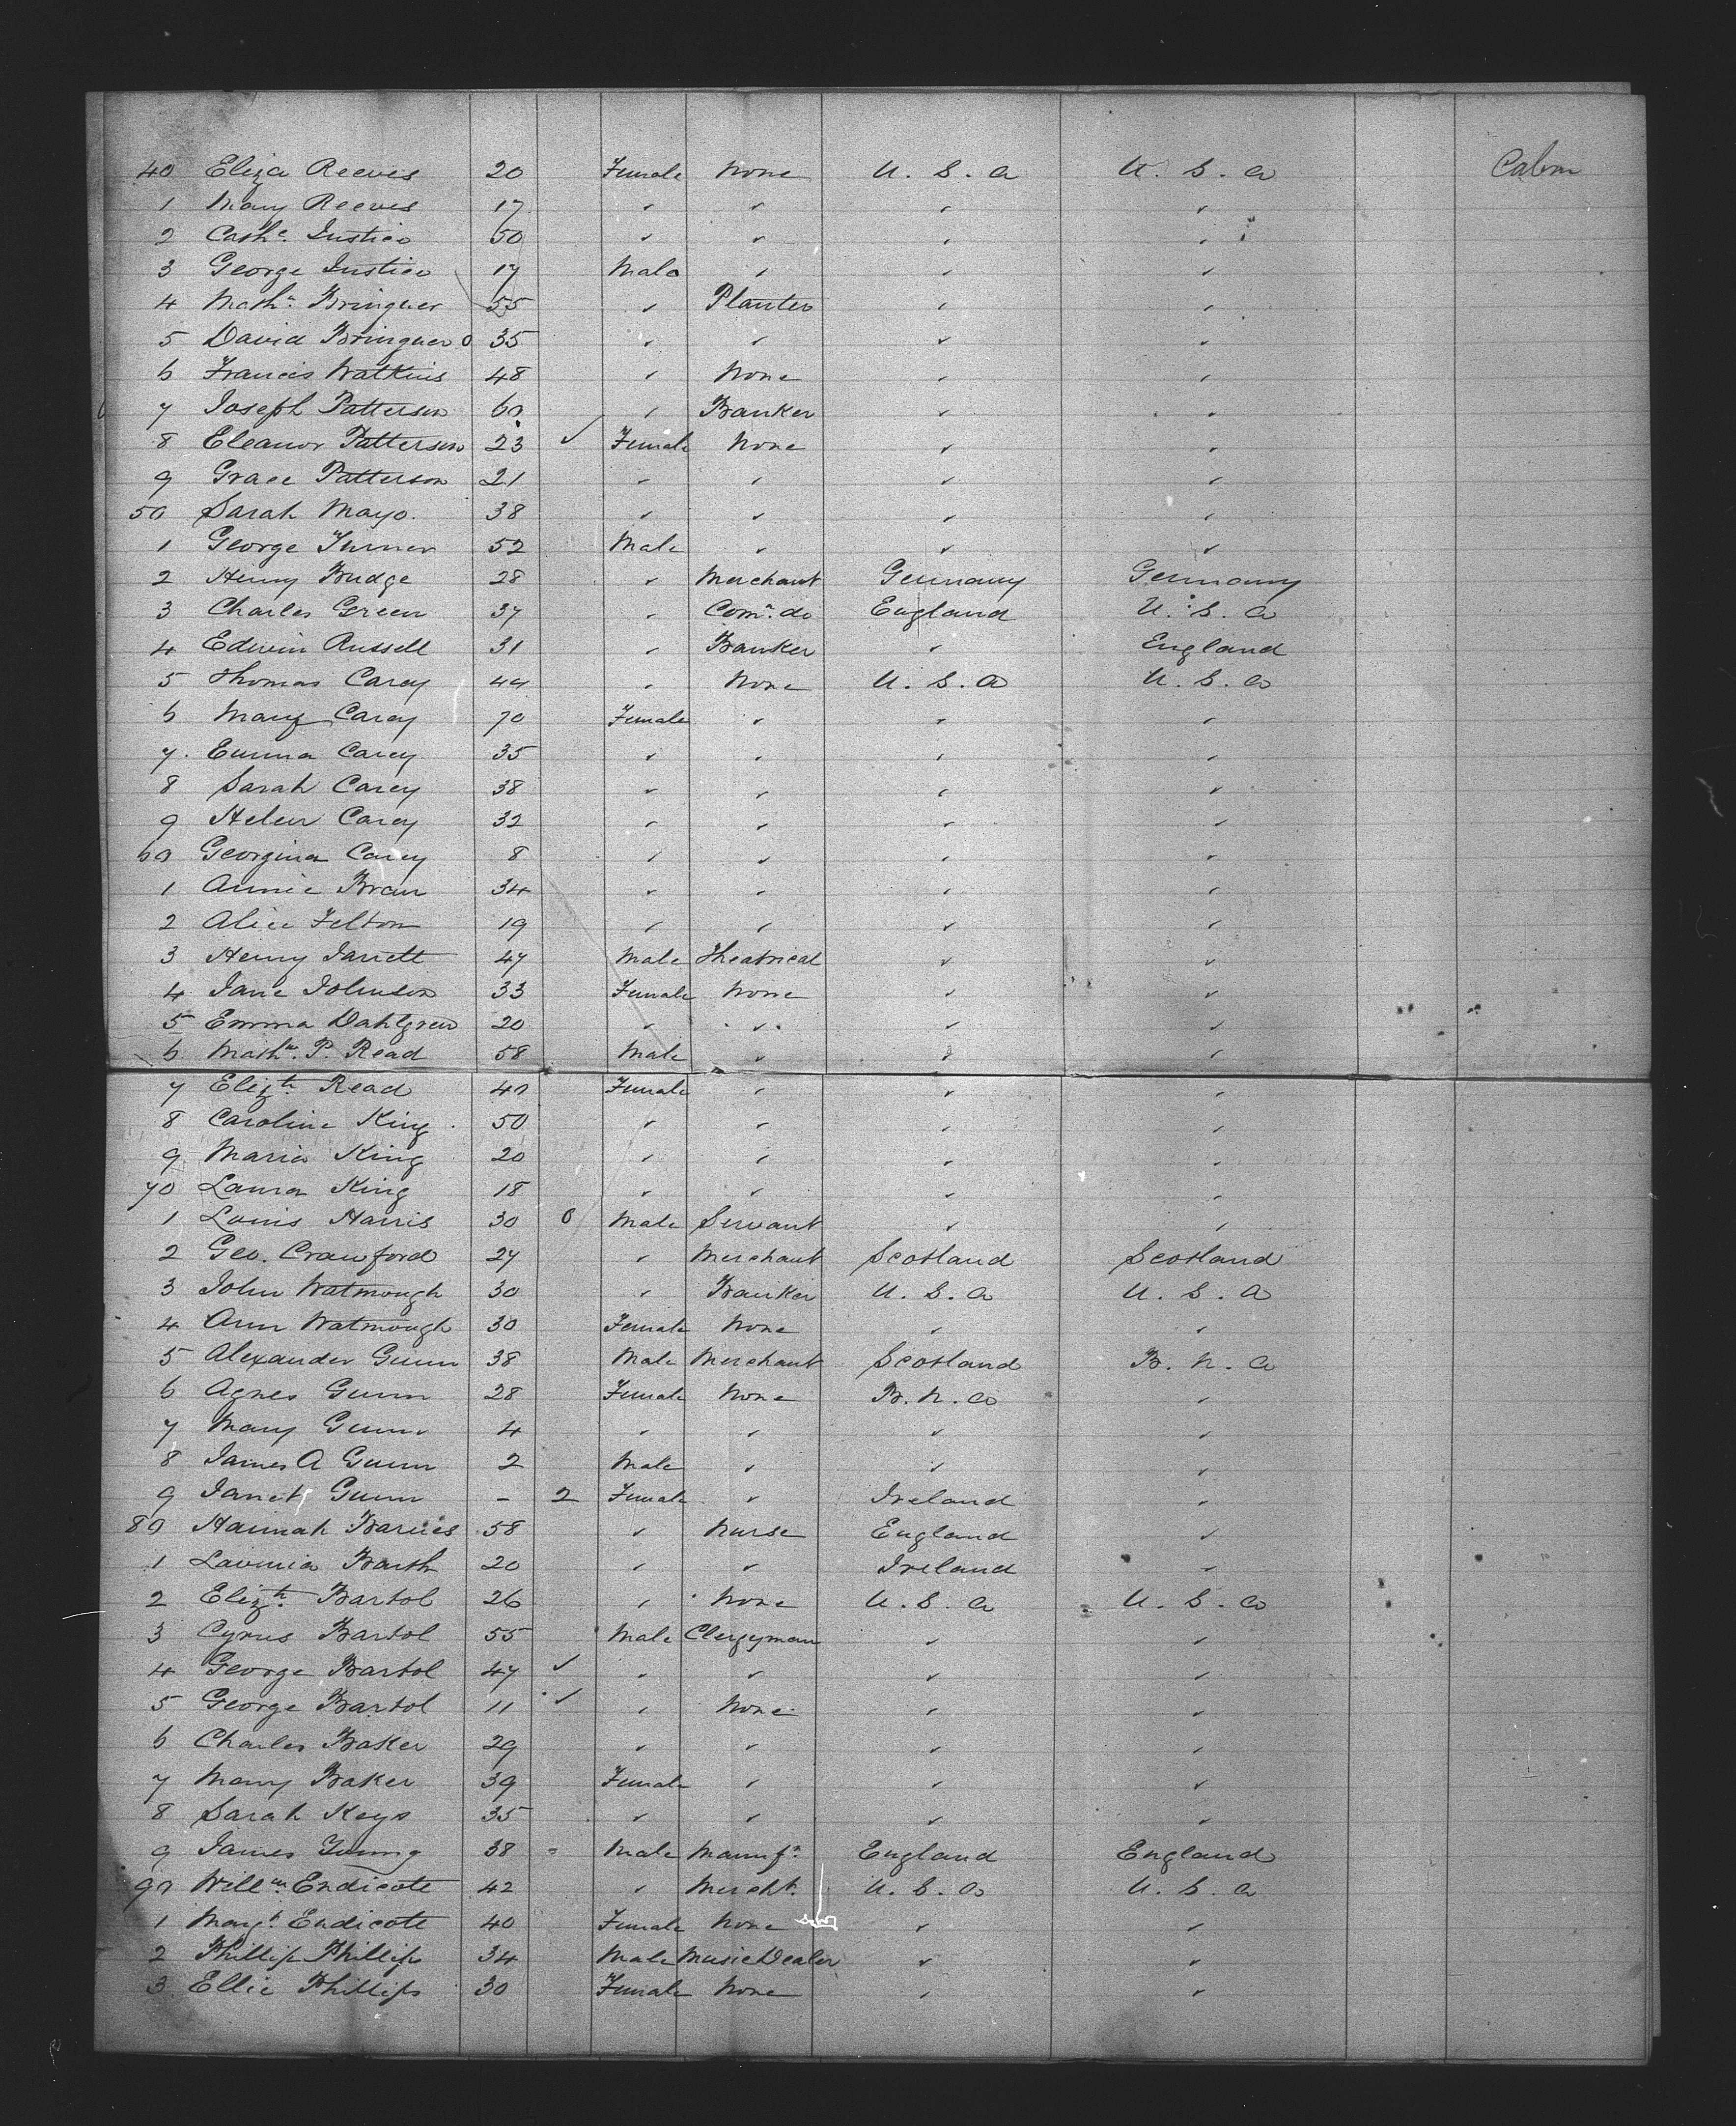 40 Eliza Reeves 20 Female None U. S. A U. S. A Cabin
1 Mary Reeves 17 " " " "
2 Cathe. Justice 50 " " " "
3 George Justice 17 Male " " "
4 55 " Planter " "
5 David Bringuer 35 " " " "
6 Francis Watkins 48 " None " "
7 Joseph Patterson 60 " Banker " "
8 Eleanor Patterson 23 ✓ Female None " "
9 Grace Patterson 21 " " " "
50 Sarah Mayo. 38 " " " "
1 George Turner 52 Male " " "
2 Henry Budge 28 " Merchant Germany Germany
3 Charles Green 37 " Comn. do England U. S. A
4 Edwin Russell 31 " Banker " England
5 Thomas Carey 44 " None U. S. A U. S. A
6 Mary Carey 70 Female " " "
7. Emma Carey 35 " " " "
8 Sarah Carey 38 " " " "
9 Helen Carey 32 " " " "
60 Georgina Carey 8 " " " "
1 Annie Bran 34 " " " "
2 Alice Felton 19 " " " "
3 Henry Jarrett 47 Male Theatrical " "
4 Jane Johnson 33 Female None " "
5 Emma Dahlgren 20 " " " "
6 P. Read 58 Male " " "
7 Elizth. Read 40 Female " " "
8 Caroline King 50 " " " "
9 Maria King 20 " " " "
70 Laura King 18 " " " "
1 Louis Harris 30 0 Male Servant " "
2 Geo. Crawford 27 " Merchant Scotland Scotland
3 John Watmough 30 " Banker U. S. A U. S. A
4 Ann Watmough 30 Female None " "
5 Alexander Gunn 38 Male Merchant Scotland B. N. A
6 Agnes Gunn 28 Female None B. N. A "
7 Mary Gunn 4 " " " "
8 James A Gunn 2 Male " " "
9 Janet Gunn - 2 Female " Ireland "
80 Hannah Barnes 58 " Nurse England "
1 Lavinia Barth 20 " " Ireland "
2 Elizth. Bartol 26 " None U. S. A U. S. A
3 Cyrus Bartol 55 Male Clergyman " "
4 George Bartol 47 ✓ " " " "
5 George Bartol 11 ✓ " None " "
6 Charles Baker 29 " " " "
7 Mary Baker 39 Female " " "
8 Sarah Keys 35 " " " "
9 James Young 38 - Male Manufr. England England
90 Willm. Endicote 42 " Mercht. U. S. A U. S. A
1 Endicote 40 Female None " "
2 Phillip Phillips 34 Male Music Dealer " "
3 Ellie Phillips 30 Female None " "